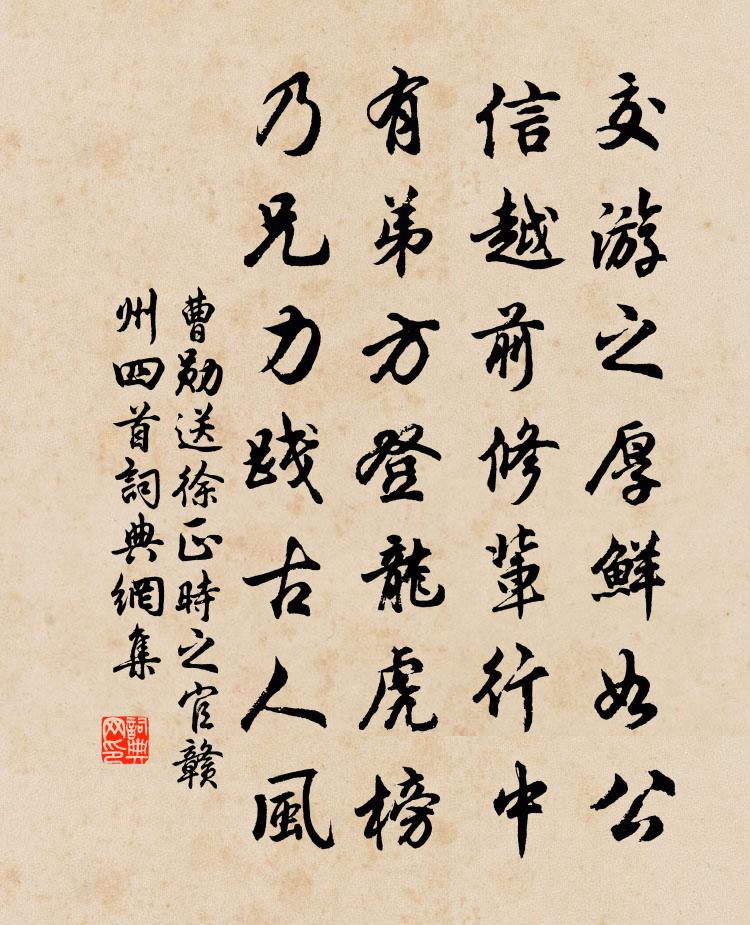 交游之厚鮮如公
信越前修輩行中
有弟方登龍虎榜
乃兄力踐古人風
曹勛送徐正時之官贛
州四首詞典網集
詞典
网印